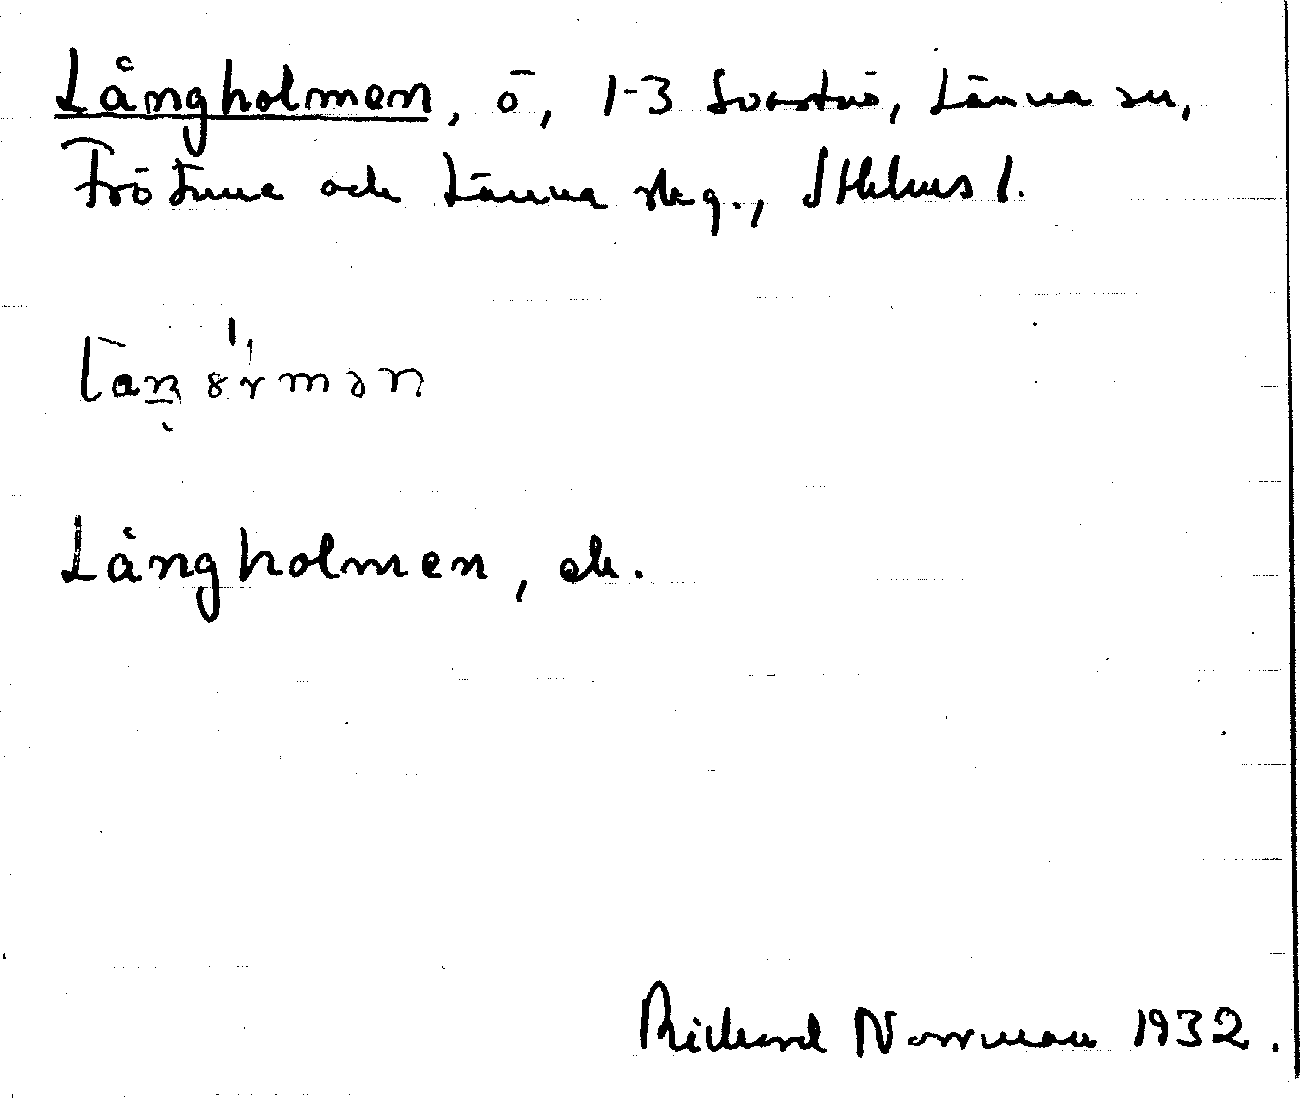 Långholmen, ö, 1-3 Svartnö, Länna sn,
Frötuna och Länna skg., Sthlms l.
Långholmen, ek.
Rickard Norrman 1932.